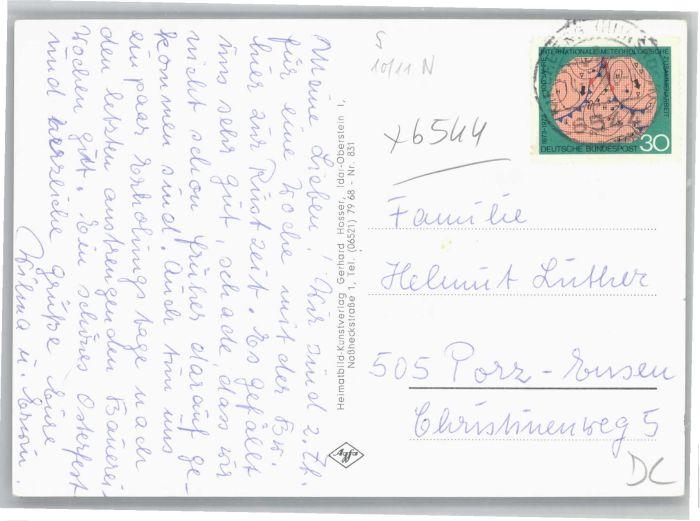 Meine Lieben! Wir sind z. Zt.
für eine Woche mit der Bw.
hier zur Rüstzeit. Es gefällt
uns sehr gut, schade, das wir
nicht schon früher darauf ge-
kommen sind. Auch tun uns
ein paar Erholungstage nach
den letzten anstrengenden Bauerei-
Wochen gut. Ein schönes Osterfest
und herzliche Grüße Eure
Wilma u. Erwin.
Heimatbild-Kunstverlag Gerhard Hosser, Idar-Oberstein 1,
Naßheckstraße 1, Tel. (06521) 79 68 - Nr. 831
Agfa
10/11 N
x6544
INTERNATIONALE METEOROLOGISCHE
ZUSAMMENARBEIT
1873-1973
6544
DEUTSCHE BUNDESPOST 30
Familie
Helmut Luther
505 Porz-Ensen
Christinenweg 5
DC